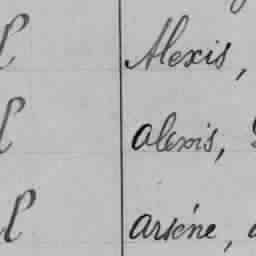 Alexis,
alexis,
arséne,